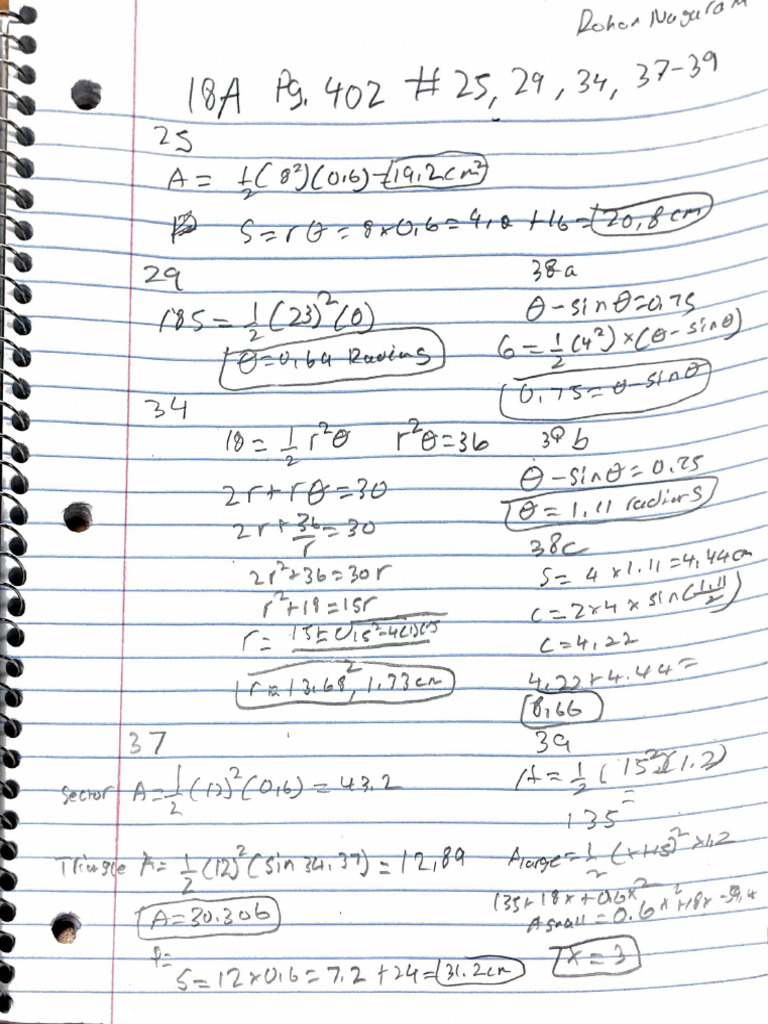 Rohan Nagaram
18A Pg. 402 # 25, 29, 34, 37-39
25
A = 1/2 (8²)(0.6) = 19.2 cm²
S = rθ = 8×0.6 = 4.8 + 16 = 20.8 cm
29
185 = 1/2 (23)² (θ)
θ = 0.64 Radians
34
18 = 1/2 r²θ r²θ = 36
2r + rθ = 30
2r + 36/r = 30
2r² + 36 = 30r
r² + 18 = 15r
r = 15 ± √15² - 4(1)(18) / 2
r = 13.68, 1.73 cm
37
Sector A = 1/2 (12)² (0.6) = 43.2
Triangle A = 1/2 (12)² (sin 34.37) = 12.89
A = 30.306
P =
S = 12 × 0.6 = 7.2 + 24 = 31.2 cm
38a
θ - sinθ = 0.75
6 = 1/2 (4²) × (θ - sinθ)
0.75 = θ - sinθ
38 b
θ - sinθ = 0.75
θ = 1.11 radians
38c
S = 4 × 1.11 = 4.44 cm
C = 2×4 × sin(1.11/2)
C = 4.22
4.22 + 4.44 =
8.66
39
A = 1/2 (15²)(1.2)
=
135
A large = 1/2 (x+15)² × 1.2
135 + 18x + 0.6x²
A small = 0.6x² + 18x - 59.4
x = 3